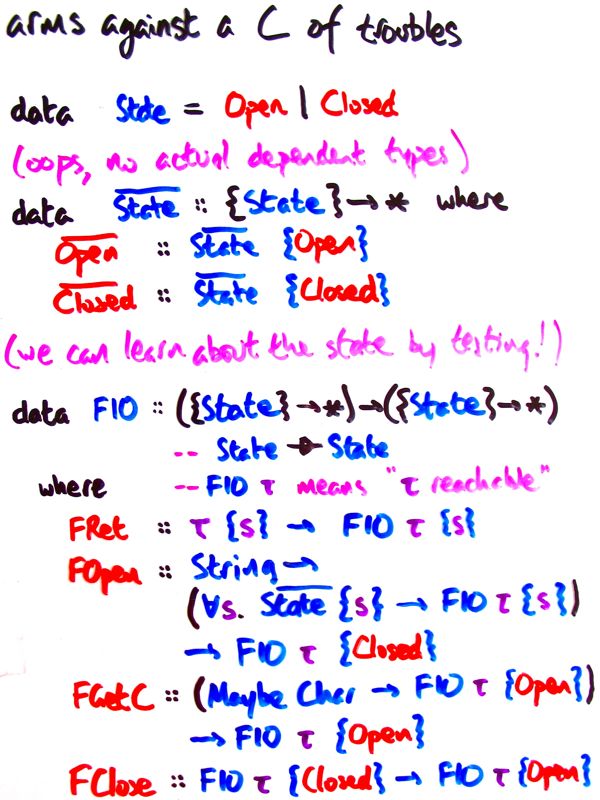 arms against a C of troubles
data State = Open | Closed
(oops, no actual dependent types)
data S̅t̅a̅t̅e̅ :: {State} → * where
O̅p̅e̅n̅ :: S̅t̅a̅t̅e̅ {Open}
C̅l̅o̅s̅e̅d̅ :: S̅t̅a̅t̅e̅ {Closed}
(we can learn about the state by testing!)
data FIO :: ({State} → *) → ({State} → *)
-- State ➔ State
where -- FIO τ means "τ reachable"
FRet :: τ {s} → FIO τ {s}
FOpen :: String →
(∀s. S̅t̅a̅t̅e̅ {s} → FIO τ {s})
→ FIO τ {Closed}
FGetC :: (Maybe Char → FIO τ {Open})
→ FIO τ {Open}
FClose :: FIO τ {Closed} → FIO τ {Open}